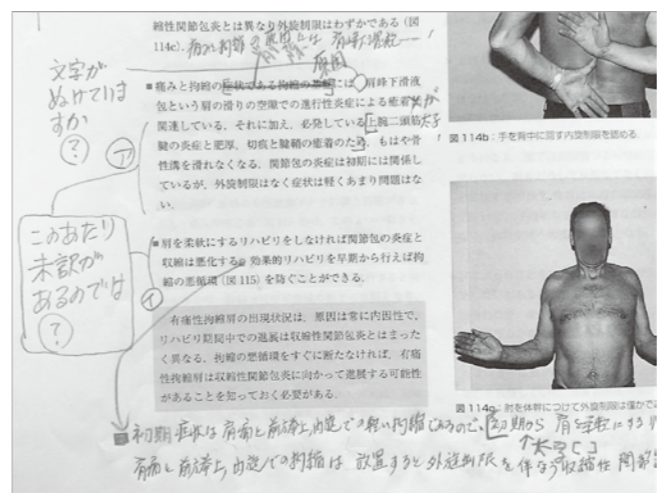 縮性関節包炎とは異なり外旋制限はわずかである（図
114c）．
痛みと拘縮の
原因
文字が
ぬけていま
すか
?
ア
■痛みと拘縮の症状である拘縮の悪循には，肩峰下滑液
包という肩の滑りの空隙での進行性炎症による癒着が
関連している．それに加え，必発している上腕二頭筋
腱の炎症と肥厚，切痕と腱鞘の癒着のため，もはや骨
性溝を滑れなくなる．関節包の炎症は初期には関係し
ているが，外旋制限はなく症状は軽くあまり問題はな
い．
太字
図 114b：手を背中に回す内旋制限を認める．
このあたり
未訳が
あるのでは
?
イ
■肩を柔軟にするリハビリをしなければ関節包の炎症と
収縮は悪化する。効果的リハビリを早期から行えば拘
縮の悪循環（図 115）を防ぐことができる．
有痛性拘縮肩の出現状況は，原因は常に内因性で，
リハビリ期間中での進展は収縮性関節包炎とはまった
く異なる．拘縮の悪循環をすぐに断たなければ，有痛
性拘縮肩は収縮性関節包炎に向かって進展する可能性
があることを知っておく必要がある．
図 114c：肘を体幹につけて外旋制限は僅かで
初期症状は肩痛と前方挙上,内旋での軽い拘縮であるので、[初期から 肩を
太字[ ]
肩痛と前方挙上,内旋での拘縮は 放置すると外旋制限を伴なう収縮性 関節